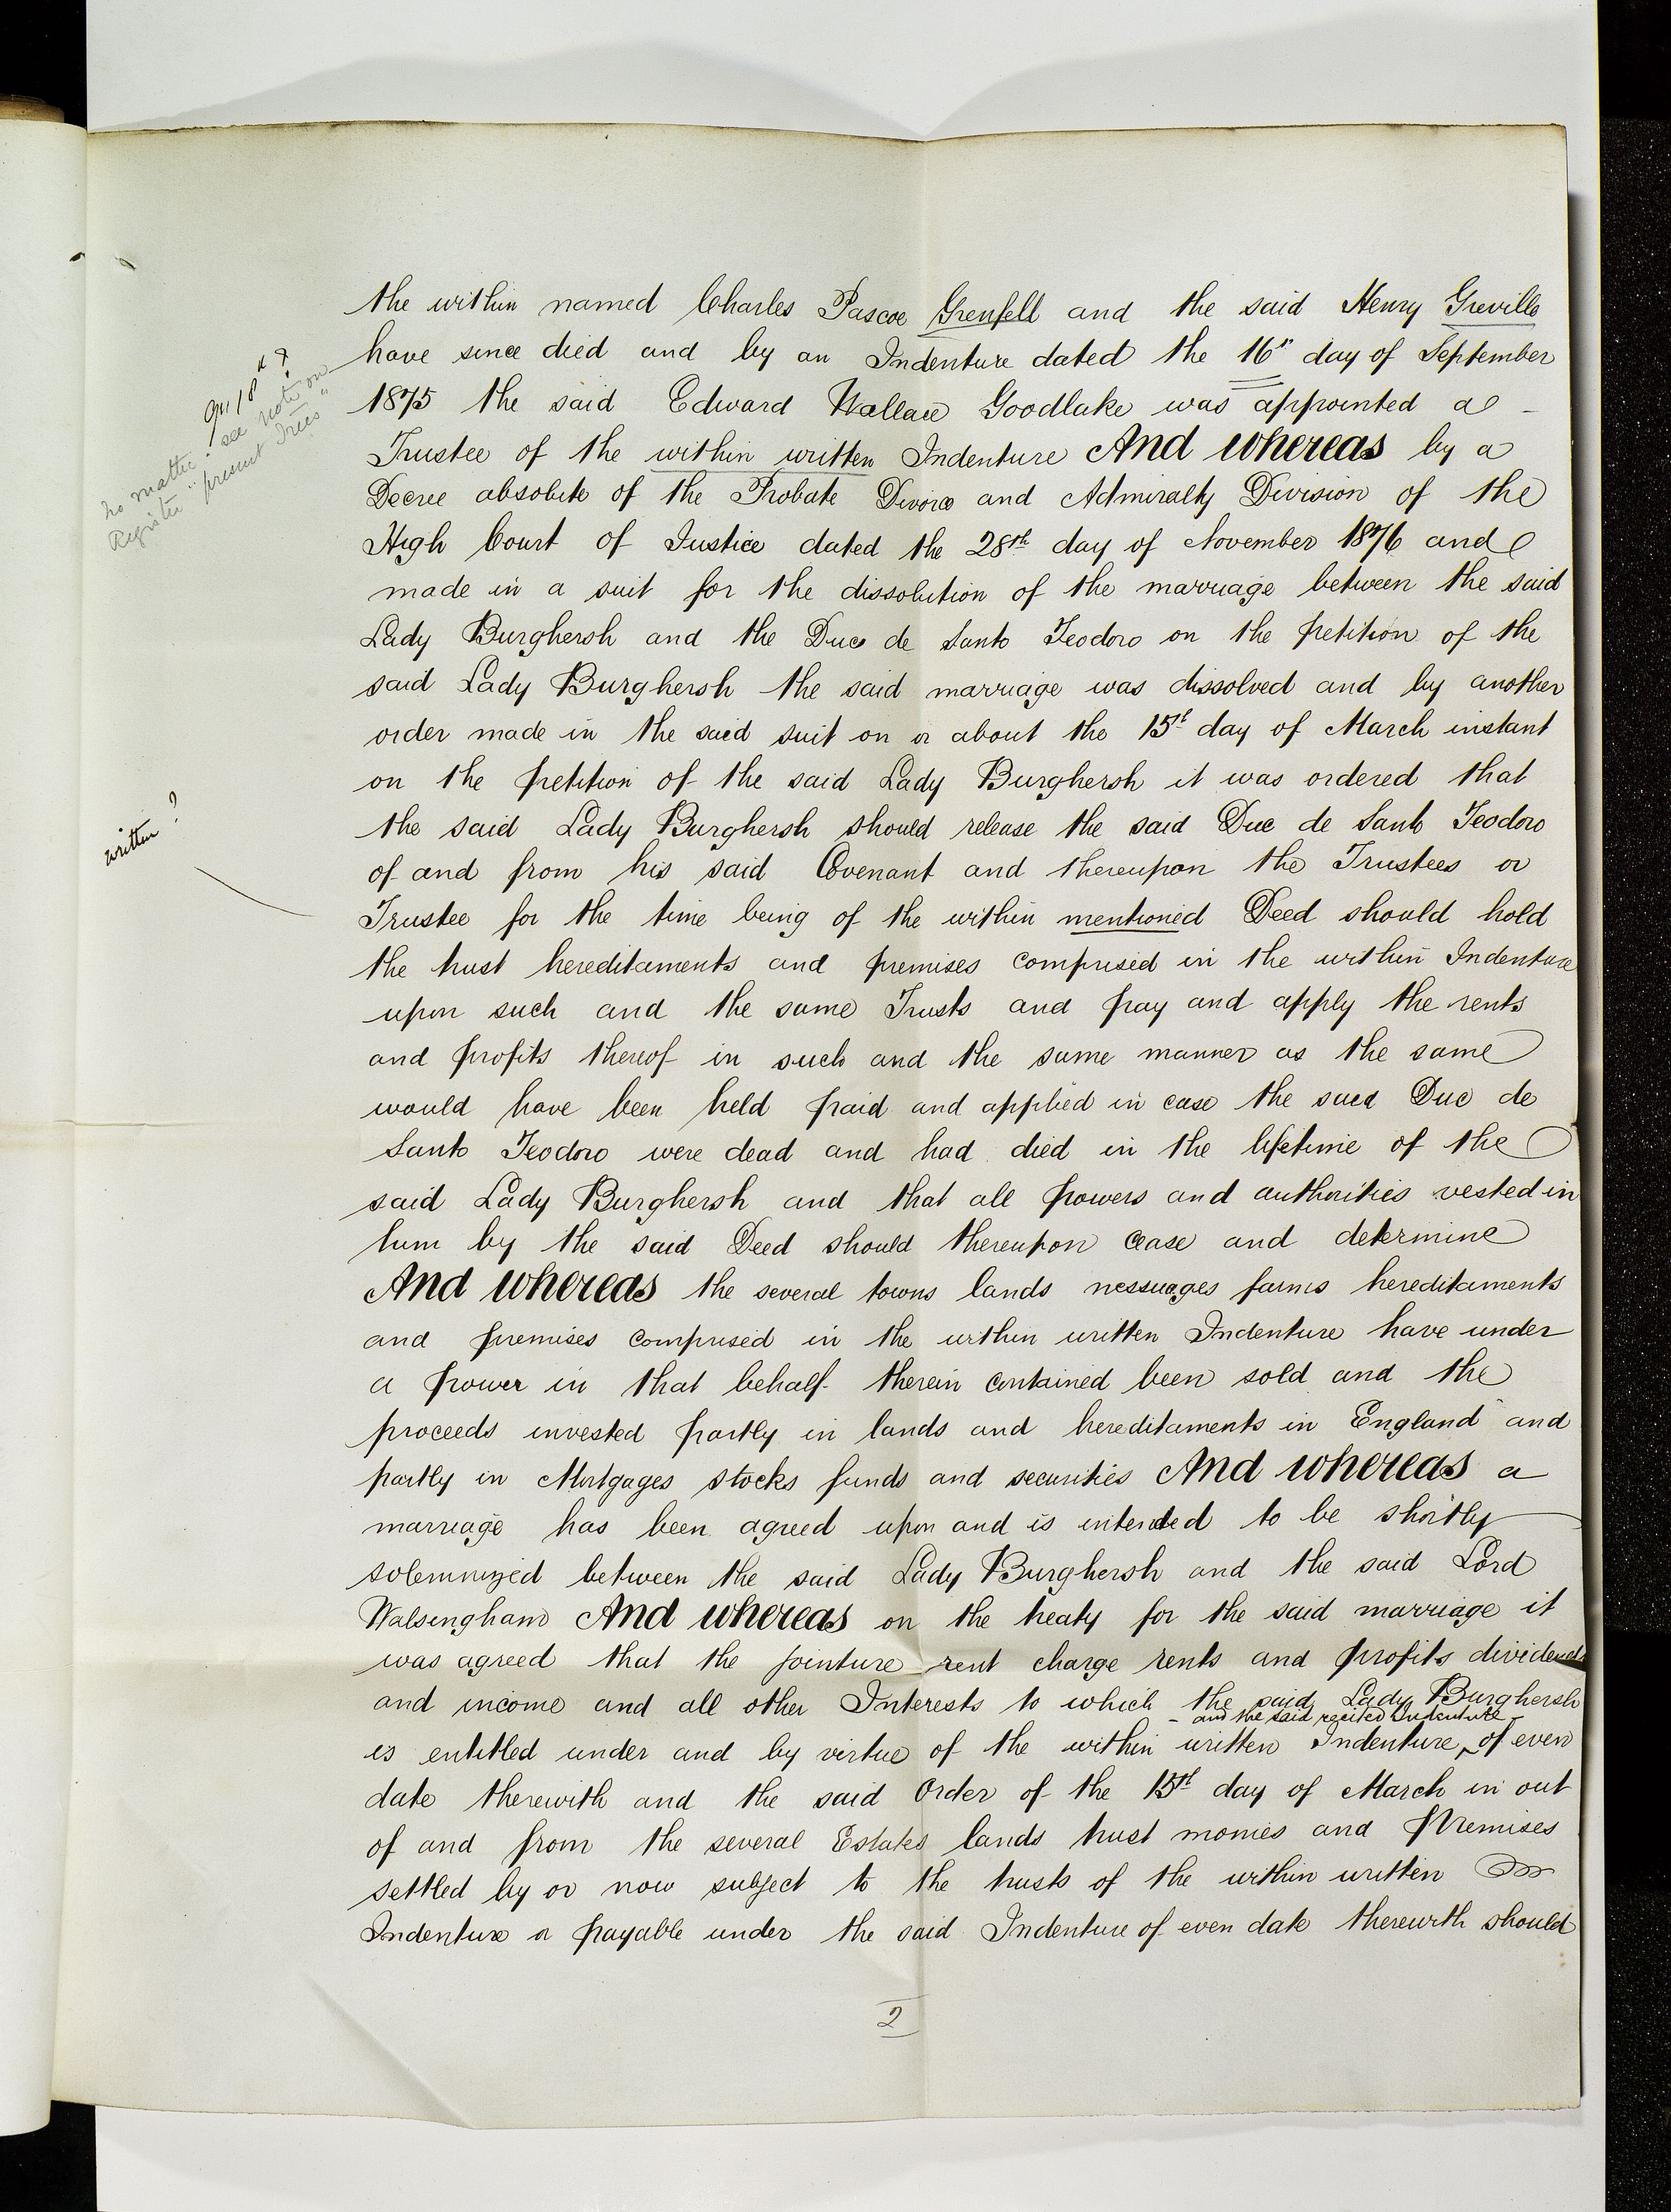 the within named Charles Pascoe Grenfell and the said Henry Greville
have since died and by an Indenture dated the 16" day of September
1875 the said Edward Wallace Goodlake was appointed a
Trustee of the within written Indenture And whereas by a
Decree absolute of the Probate Divorce and Admiralty Division of the
High Court of Justice dated the 28th day of November 1876 and
made in a suit for the dissolution of the marriage between the said
Lady Burghersh and the Duc de Santo Teodoro on the petition of the
said Lady Burghersh the said marriage was dissolved and by another
order made in the said suit on or about the 15th day of March instant
on the petition of the said Lady Burghersh it was ordered that
the said Lady Burghersh should release the said Duc de Santo Teodoro
of and from his said Covenant and thereupon the Trustees or
Trustee for the time being of the within mentioned Deed should hold
the trust hereditaments and premises comprised in the within Indenture
upon such and the same Trusts and pay and apply the rents
and profits thereof in such and the same manner as the same
would have been held paid and applied in case the said Duc de
Santo Teodoro were dead and had died in the lifetime of the
said Lady Burghersh and that all powers and authorities vested in
him by the said Deed should thereupon cease and determine
And whereas the several towns lands messuages farms hereditaments
and premises comprised in the within written Indenture have under
a power in that behalf therein contained been sold and the
proceeds invested partly in lands and hereditaments in England and
partly in Mortgages stocks funds and securities And whereas a
marriage has been agreed upon and is intended to be shortly
solemnized between the said Lady Burghersh and the said Lord
Walsingham And whereas on the treaty for the said marriage it
was agreed that the jointure rent charge rents and profits dividends
and income and all other Interests to which the said Lady Burghersh
and the said recited Indenture
is entitled under and by virtue of the within written Indenture of even
date therewith and the said Order of the 15th day of March in out
of and from the several Estates lands trust monies and Premises
settled by or now subject to the trusts of the within written
Indenture or payable under the said Indenture of even date therewith should
2
qu 18
no matter see note on
Register "present Trees"
written?